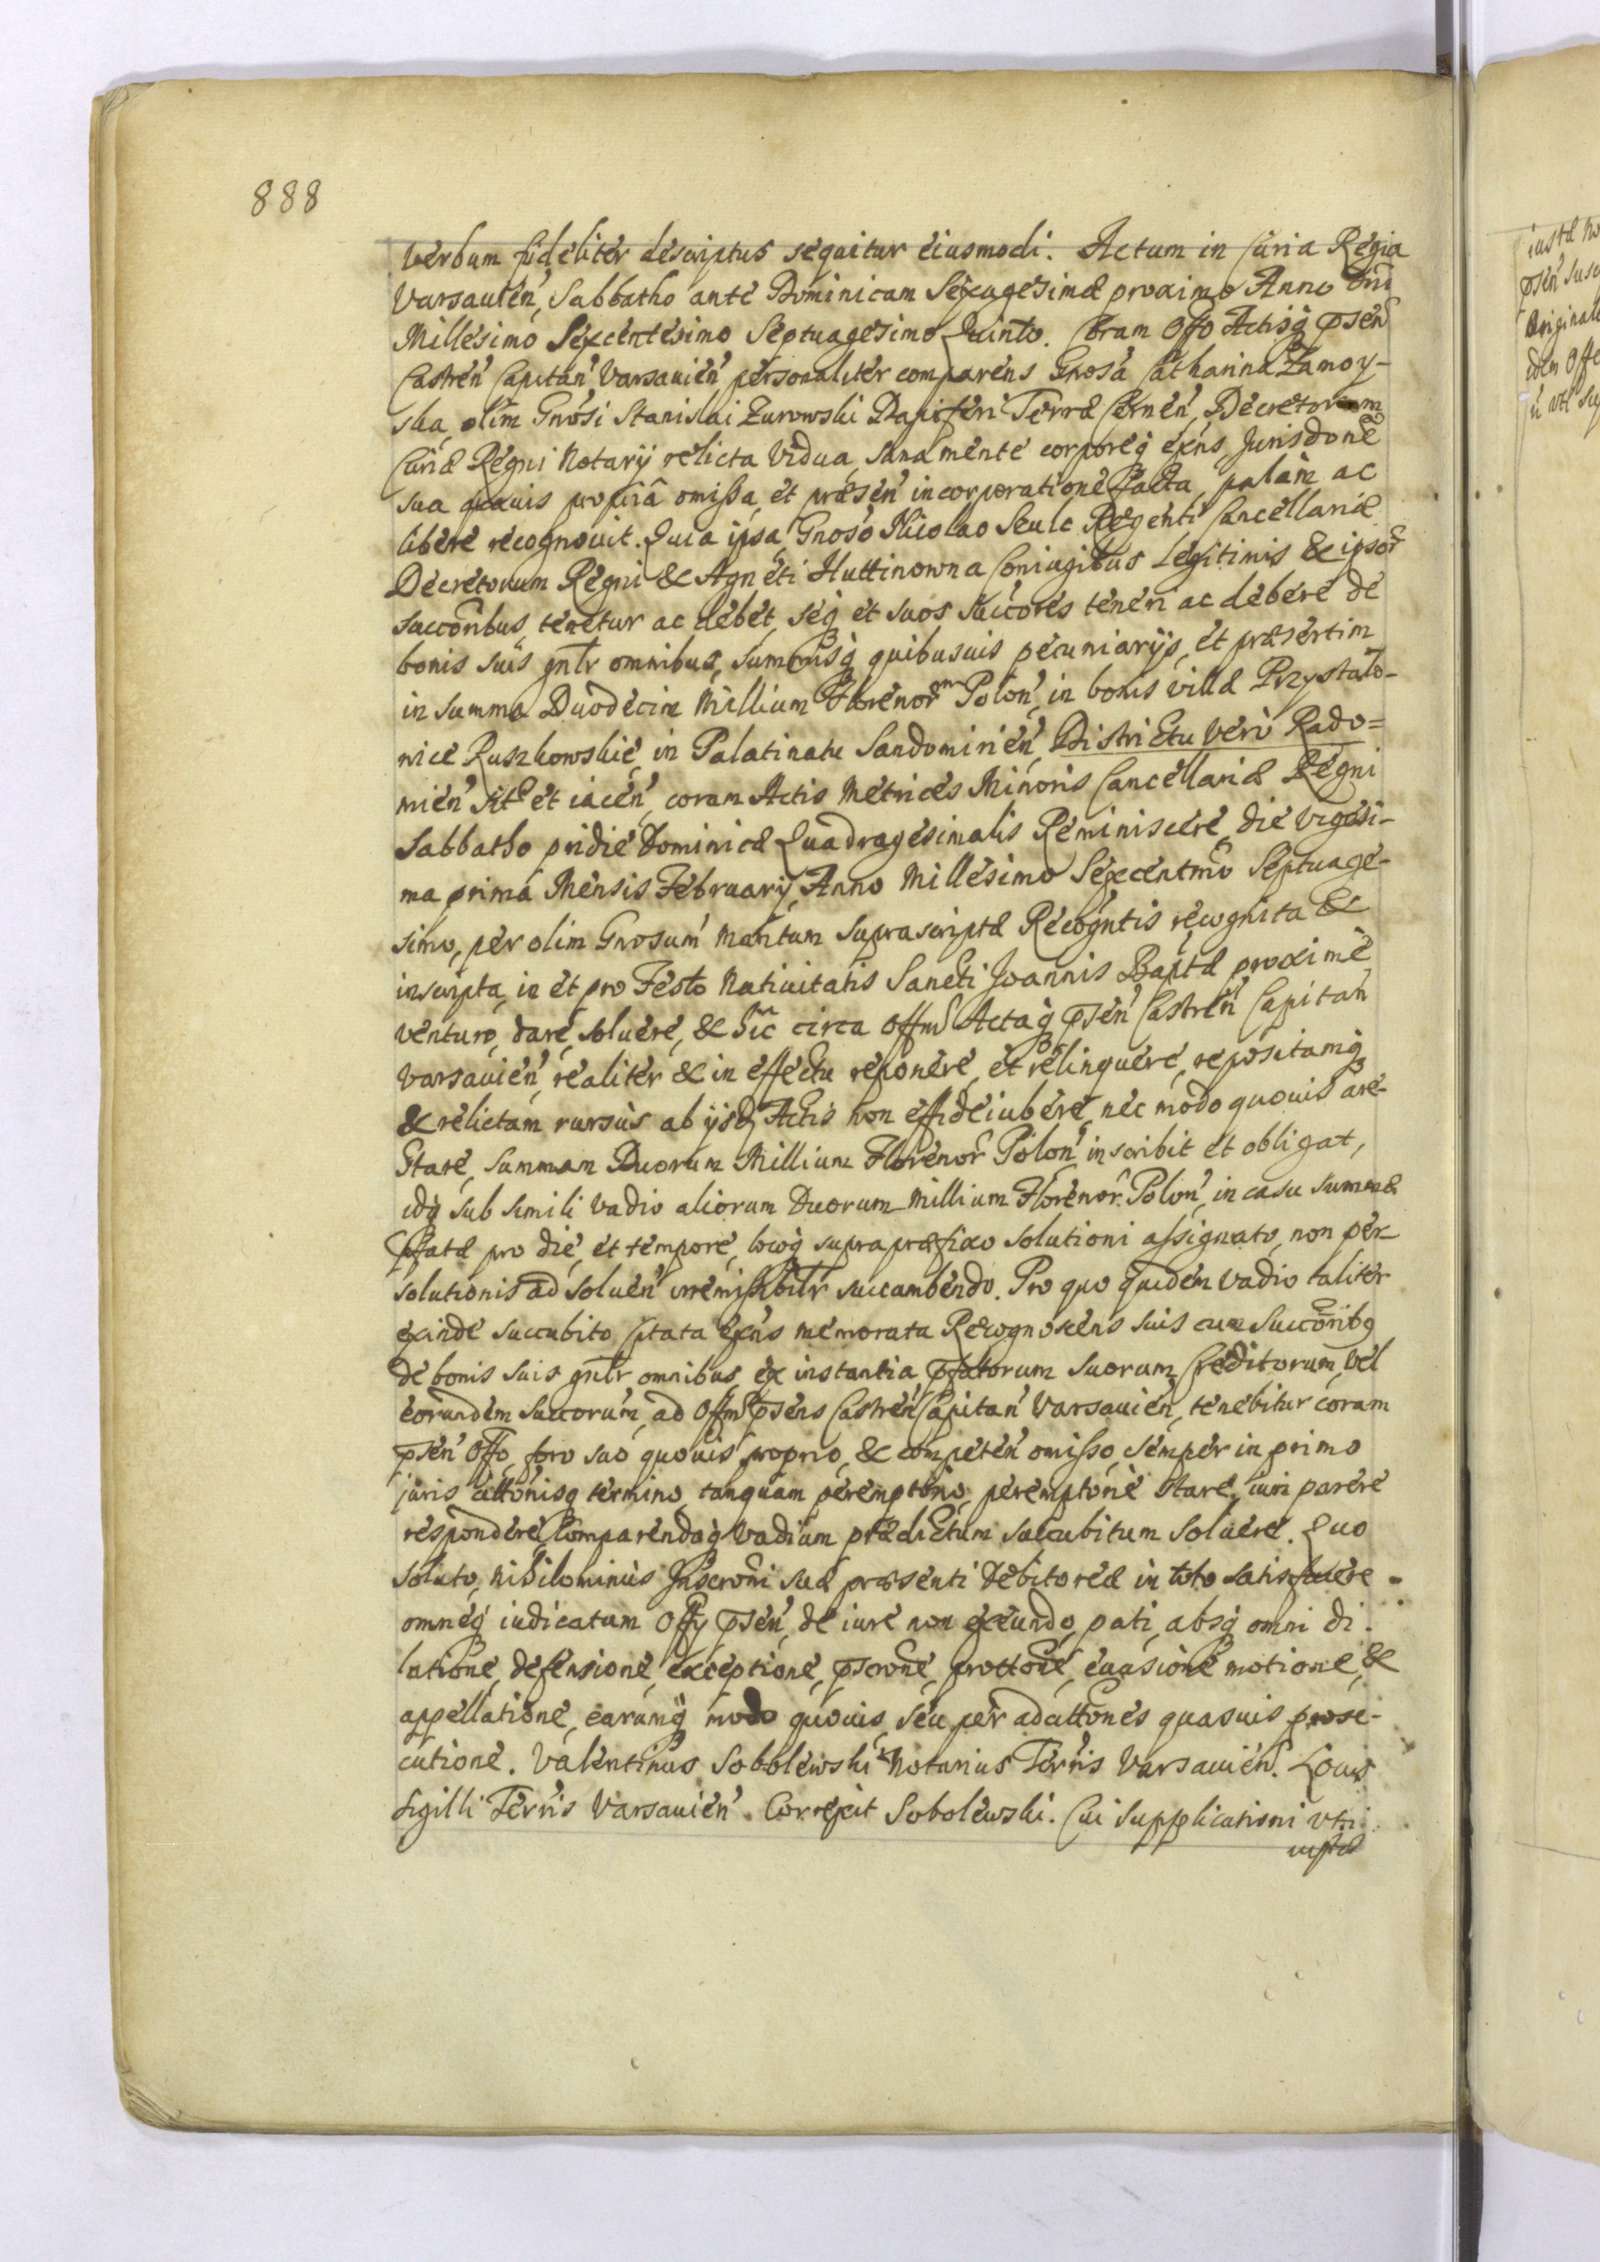 888
verbum fideliter descriptus sequitur eiusmodi. Actum in Curia Regia
Varsauien̄, Sabbatho ante Dominicam Sexagesimæ proximo Anno Dn̄i
Millesimo Sexcentesimo Septuagesimo Quinto. Coram Offo Actisq̢ p̄sen̄
Castren̄ Capitan̄ Varsauien̄ personaliter comparens Gnosa Catharina Zamoy-
ska, olim Gnosi Stanislai Zurowski Dapiferi Terræ Cernen̄, Decretorum
Curiæ Regni Notarij relicta Vidua, sana mente corporeq̢ exns, Jurisdone
sua quauis propria omissa, et præsen̄ incorporatione facta, palam ac
libere recognouit. Quia ipsa Gnoso Nicolao Seulc Regenti Cancellariæ
Decretorum Regni & Agneti Huttinowna Coniugibus Legitimis & ipsor̄
succoribus, tenetur ac debet, seq̢ et suos succores teneri ac debere de
bonis suis gnlr omnibus, summisq̢ quibusuis pecuniarijs, et præsertim
in summa Duodecim Millium Florenor̄ Polon̄, in bonis villæ Przystało-
wice Ruszkowskie, in Palatinatu Sandomirien̄, Districtu vero Rado=
mien̄ sit̄ et iacen̄, coram Actis Metrices Minoris Cancellariæ Regni
Sabbatho pridie Dominicæ Quadragesimalis Reminiscere, die vigesi-
ma prima Mensis February, Anno Millesimo Sexcentmo Septuage-
simo, per olim Gnosum Maritum suprascriptæ Recogntis recognita &
inscripta, in et pro Festo Natiuitatis Sancti Joannis Baptæ proxime
venturo, dare, soluere, & hic circa Offm Actaq̢ p̄sen̄ Castren̄ Capitan̄
Varsauien̄, realiter & in effectu reponere, et relinquere, repositamq̢
& relictam rursus ab ijsd̄ Actis non effideiubere, nec modo quouis are-
stare, summam Duorum Millium Florenor̄ Polon̄ inscribit et obligat,
idq̢ sub simili vadio aliorum Duorum Millium Florenor̄ Polon̄, in casu summæ
p̄fatæ pro die, et tempore, locoq̢ supra præfixo solutioni assignato, non per-
solutionis ad soluen̄ irremissibilr succumbendo. Pro quo quidem vadio taliter
exinde succubito citata exns memorata Recognoscens suis cum Succoribq̢
de bonis suis gnlr omnibus, ex instantia p̄fatorum suorum Creditorum, vel
eorundem succorum, ad Offm p̄sens Castren̄ Capitan̄ Varsauien̄, tenebitur coram
p̄sen̄ Offo, foro suo quouis proprio, & competen̄ omisso, semper in primo
juris attonisq̢ termino, tanquam peremptorio, peremptorie stare, iuri parere
respondere Comparendoq̢ Vadium prædictum succubitum soluere. Quo
soluto, nihilominus Inscroni suæ præsenti debitoreæ in toto satisfacere
omneq̢ iudicatum Offy p̄sen̄, de iure non exeundo, pati, absq̢ omni di-
latione, defensione, exceptione, p̄scrone, prottone, euasione motione, &
appellatione, earumq̢ modo quouis, seu per ad attones quasuis prose-
cutione. Valentinus Sobolewski Notarius Terris Varsauien̄. Locus
Sigilli Terris Varsauien̄. Correxit Sobolewski. Cui Supplicationi vti
iustæ